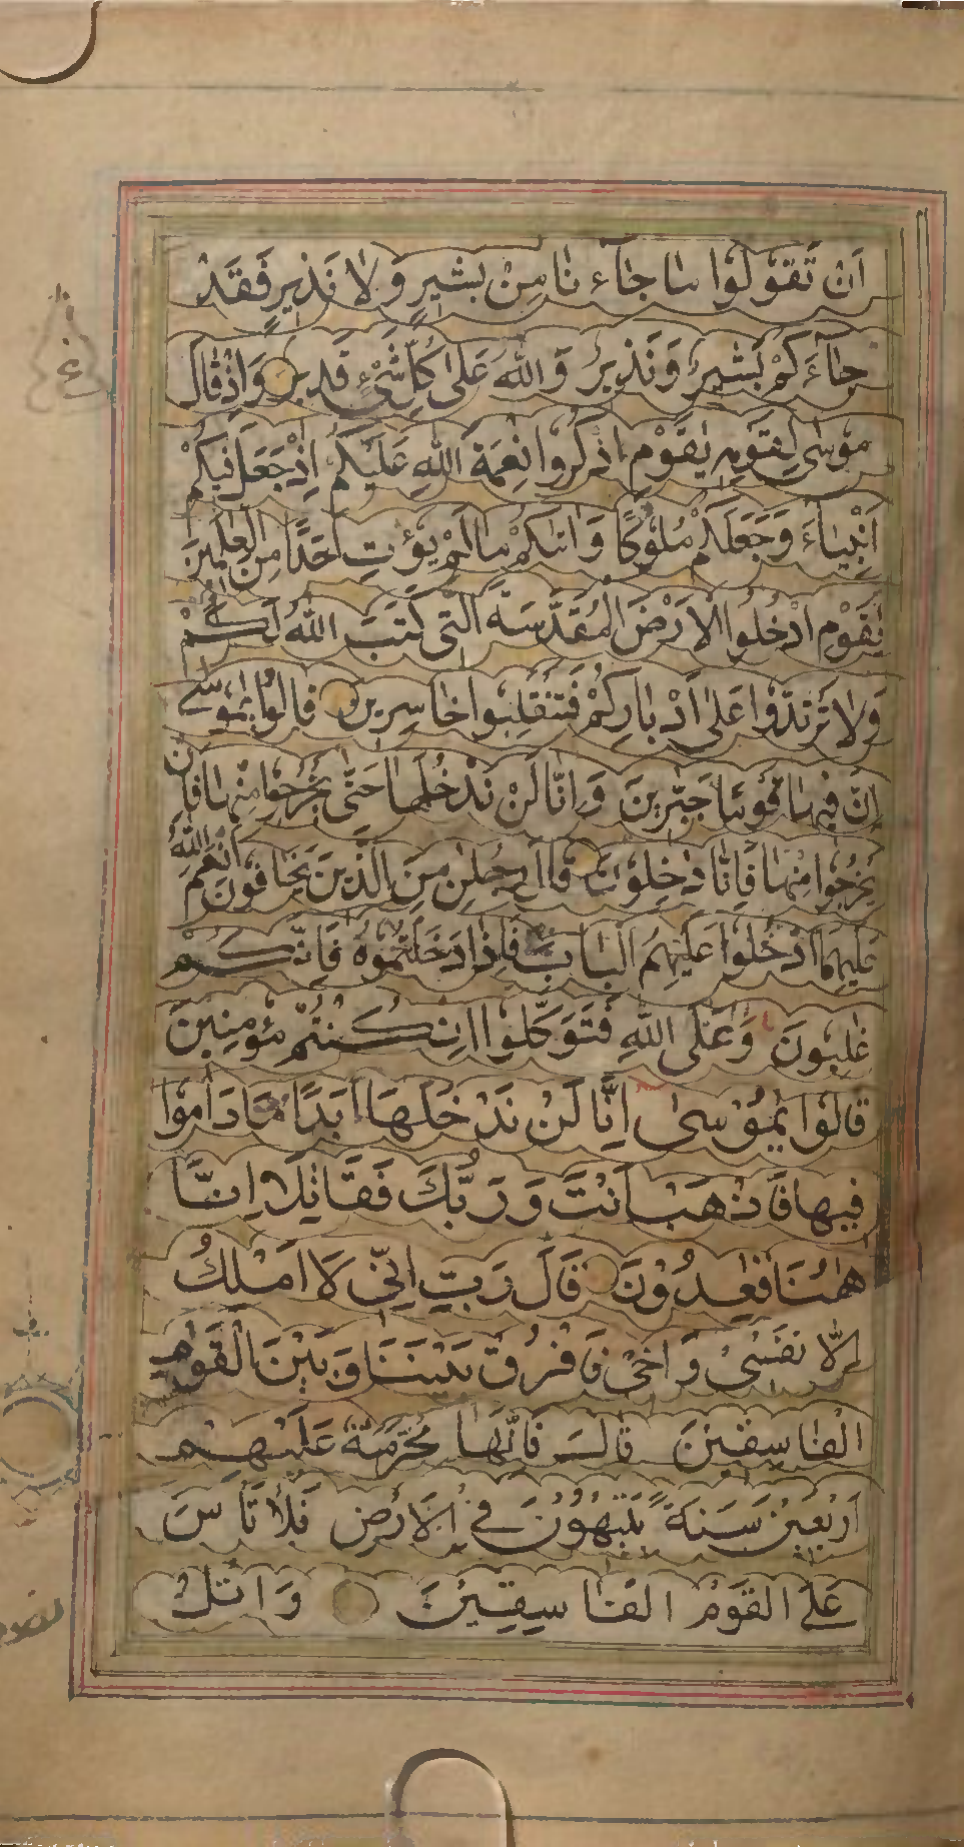 اَنْ تَقُوْلُوْا مَا جَآءَنَا مِنْ بَشِيْرٍ وَلَا نَذِيْرٍ فَقَدْ
جَآءَكُمْ بَشِيْرٌ وَنَذِيْرٌ وَاللّٰهُ عَلٰى كُلِّ شَیْءٍ قَدِيْرٌ وَاِذْ قَالَ
مُوْسٰى لِقَوْمِهٖ يٰقَوْمِ اذْكُرُوْا نِعْمَةَ اللّٰهِ عَلَيْكُمْ اِذْ جَعَلَ فِيْكُمْ
اَنْۢبِيَآءَ وَجَعَلَكُمْ مُلُوْكًا وَاٰتٰىكُمْ مَا لَمْ يُؤْتِ اَحَدًا مِنَ الْعٰلَمِيْنَ
يٰقَوْمِ ادْخُلُوا الْاَرْضَ الْمُقَدَّسَةَ الَّتِىْ كَتَبَ اللّٰهُ لَكُمْ
وَلَا تَرْتَدُّوْا عَلٰى اَدْبَارِكُمْ فَتَنْقَلِبُوْا خَاسِرِيْنَ قَالُوْا يٰمُوْسٰے
اِنَّ فِيْهَا قَوْمًا جَبَّرِيْنَ وَاِنَّا لَنْ نَدْخُلَهَا حَتّٰى يَخْرُجُوْا مِنْهَا فَاِنْ
يَخْرُجُوْا مِنْهَا فَاِنَّا دٰخِلُوْنَ قَالَ رَجُلٰنِ مِنَ الَّذِيْنَ يَخَافُوْنَ اَنْعَمَ اللّٰهُ
عَلَيْهِمَا ادْخُلُوْا عَلَيْهِمُ الْبَابَ فَاِذَا دَخَلْتُمُوْهُ فَاِنَّكُمْ
غٰلِبُوْنَ وَعَلَى اللّٰهِ فَتَوَكَّلُوْا اِنْ كُنْتُمْ مُؤْمِنِيْنَ
قَالُوْا يٰمُوْسٰى اِنَّا لَنْ نَدْخُلَهَا اَبَدًا مَا دَامُوْا
فِيْهَا فَاذْهَبْ اَنْتَ وَرَبُّكَ فَقَاتِلَا اِنَّا
هٰهُنَا قٰعِدُوْنَ قَالَ رَبِّ اِنِّىْ لَا اَمْلِكُ
اِلَّا نَفْسِىْ وَاَخِىْ فَافْرُقْ بَيْنَنَا وَبَيْنَ الْقَوْمِ
الْفَاسِقِيْنَ قَالَ فَاِنَّهَا مُحَرَّمَةٌ عَلَيْهِمْ
اَرْبَعِيْنَ سَنَةً يَتِيْهُوْنَ فِى الْاَرْضِ فَلَا تَاْسَ
عَلَى الْقَوْمِ الْفَاسِقِيْنَ وَاتْلُ
ع